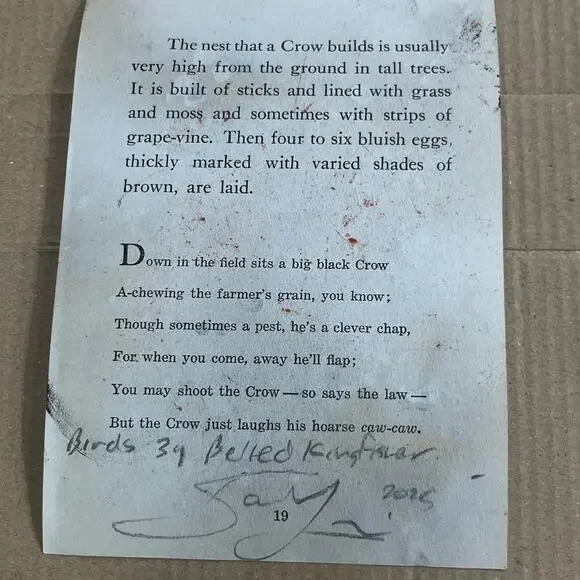 The nest that a Crow builds is usually
very high from the ground in tall trees.
It is built of sticks and lined with grass
and moss and sometimes with strips of
grape-vine. Then four to six bluish eggs,
thickly marked with varied shades of
brown, are laid.
Down in the field sits a big black Crow
A-chewing the farmer's grain, you know;
Though sometimes a pest, he's a clever chap,
For when you come, away he'll flap;
You may shoot the Crow — so says the law —
But the Crow just laughs his hoarse caw-caw.
Birds 39 Belted Kingfisher
2025
19